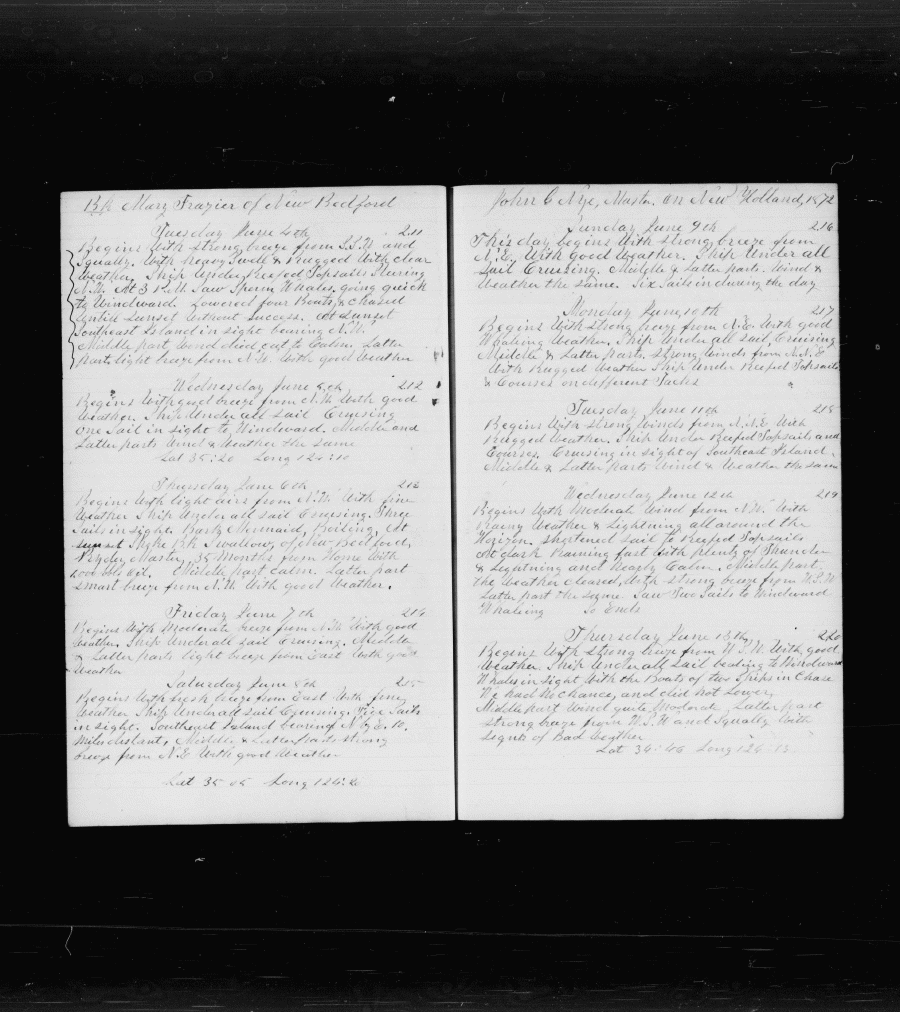 Bk Mary Frazier of New Bedford
Tuesday June 4th 211
Begins With strong breeze from S.S.W and
Squally. With heavy Swell & Rugged With clear
Weather. Ship Under Reefed Topsails Steering
N.W. At 3 P.M. Saw Sperm Whales, going quick
to Windward. Lowered four Boats, & Chased
Untill Sunset Without Success. At Sunset
Southeast Island in sight bearing N.W.
Middle part, Wind died out to Calm. Latter
part, light breeze from N.W. With good Weather
Wednesday June 5th 212
Begins With good breeze from N.W. With good
Weather. Ship Under all sail Cruising
One Sail in sight to Windward. Middle and
Latter parts Wind & Weather the same
Lat 35:20 Long 124:10
Thursday June 6th 213
Begins With light airs from N.W. With fine
Weather Ship Under all sail Cruising. Three
Sails in sight. Bark Mermaid, Boiling. At
sunset Spoke Bk Swallow, of New Bedford,
Ryder Master, 35 Months from Home With
Bbls Oil. Middle part calm. Latter part
smart breeze from N.W. With good Weather.
Friday June 7th 214
Begins With Moderate breeze from N.W. With good
Weather. Ship Under all sail Cruising. Middle
& Latter parts light breeze from East With good
Weather
Saturday June 8th 215
Begins With fresh breeze from East With fine
Weather Ship Under all sail Cruising. Five Sails
in sight. Southeast Island bearing N by E.
Miles distant, Middle & Latter parts strong
breeze from N.E With good Weather
Lat 35 05 Long 124:20
John C Nye, Master. On New Holland, 1872
Sunday June 9th 216
This day begins With strong breeze from
N.E. With good Weather. Ship Under all
Sail Cruising. Middle & Latter parts. Wind &
Weather the same. Six Sails in during the day
Monday June 10th 217
Begins With strong breeze from N.E. With good
Whaling Weather. Ship Under all sail Cruising
Middle & Latter parts, strong winds from N.N.E
With Rugged Weather Ship Under Reefed Topsails
& Courses on different Tacks
Tuesday June 11th 218
Begins With strong Winds from N.N.E With
Rugged Weather. Ship Under Reefed Topsails and
Courses. Cruising in sight of Southeast Island.
Middle & Latter parts Wind & Weather the same
Wednesday June 12th 219
Begins With Moderate Wind from N.W. With
Rainy Weather & Lightning all around the
Horizon. shortened sail to Reefed Topsails
At dark Raining fast With plenty of Thunder
& Lightning and Nearly Calm. Middle part
the Weather cleared, With strong breeze from W.S.W
Latter part the same Saw Two Sails to Windward
Whaleing So Ends
Thursday June 13th 220
Begins With strong breeze from W.S.W. With good
Weather. Ship Under all sail beating to Windward
Whales in sight With the Boats of two Ships in Chase
We had No Chance, and did not Lower,
Middle part Wind quite Moderate, Latter part
strong breeze from W.S.W and Squally With
Signs of Bad Weather
Lat 34:46 Long 124:13